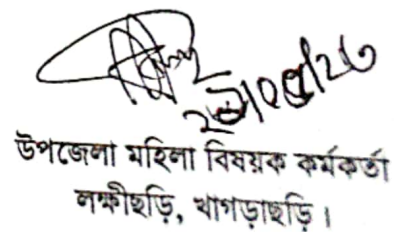 উপজেলা মহিলা বিষয়ক কর্মকর্তা
লক্ষীছড়ি, খাগড়াছড়ি।